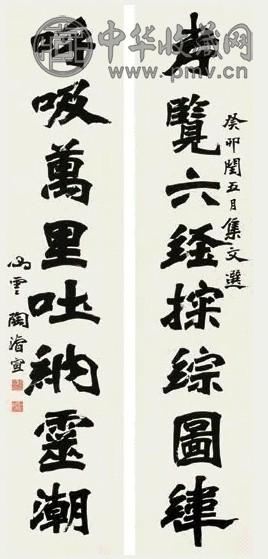 中华收藏网
www.pmv.cn
考覽六經探綜圖緯
癸卯閏五月集文選
呼吸萬里吐納靈潮
心雲陶濬宣